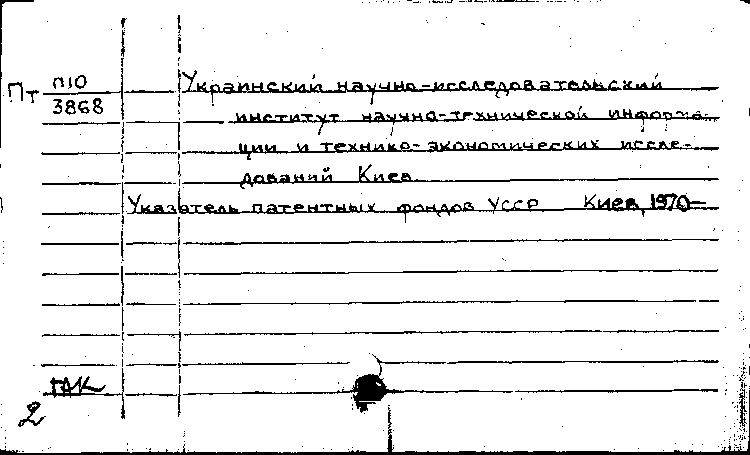 Пт П10
3868
Украинский научно-исследовательский
институт научно-технической информа-
ции и технико-экономических иссле-
дований Киев
Указатель патентных фондов УССР Киев, 1970-
ГАК
2